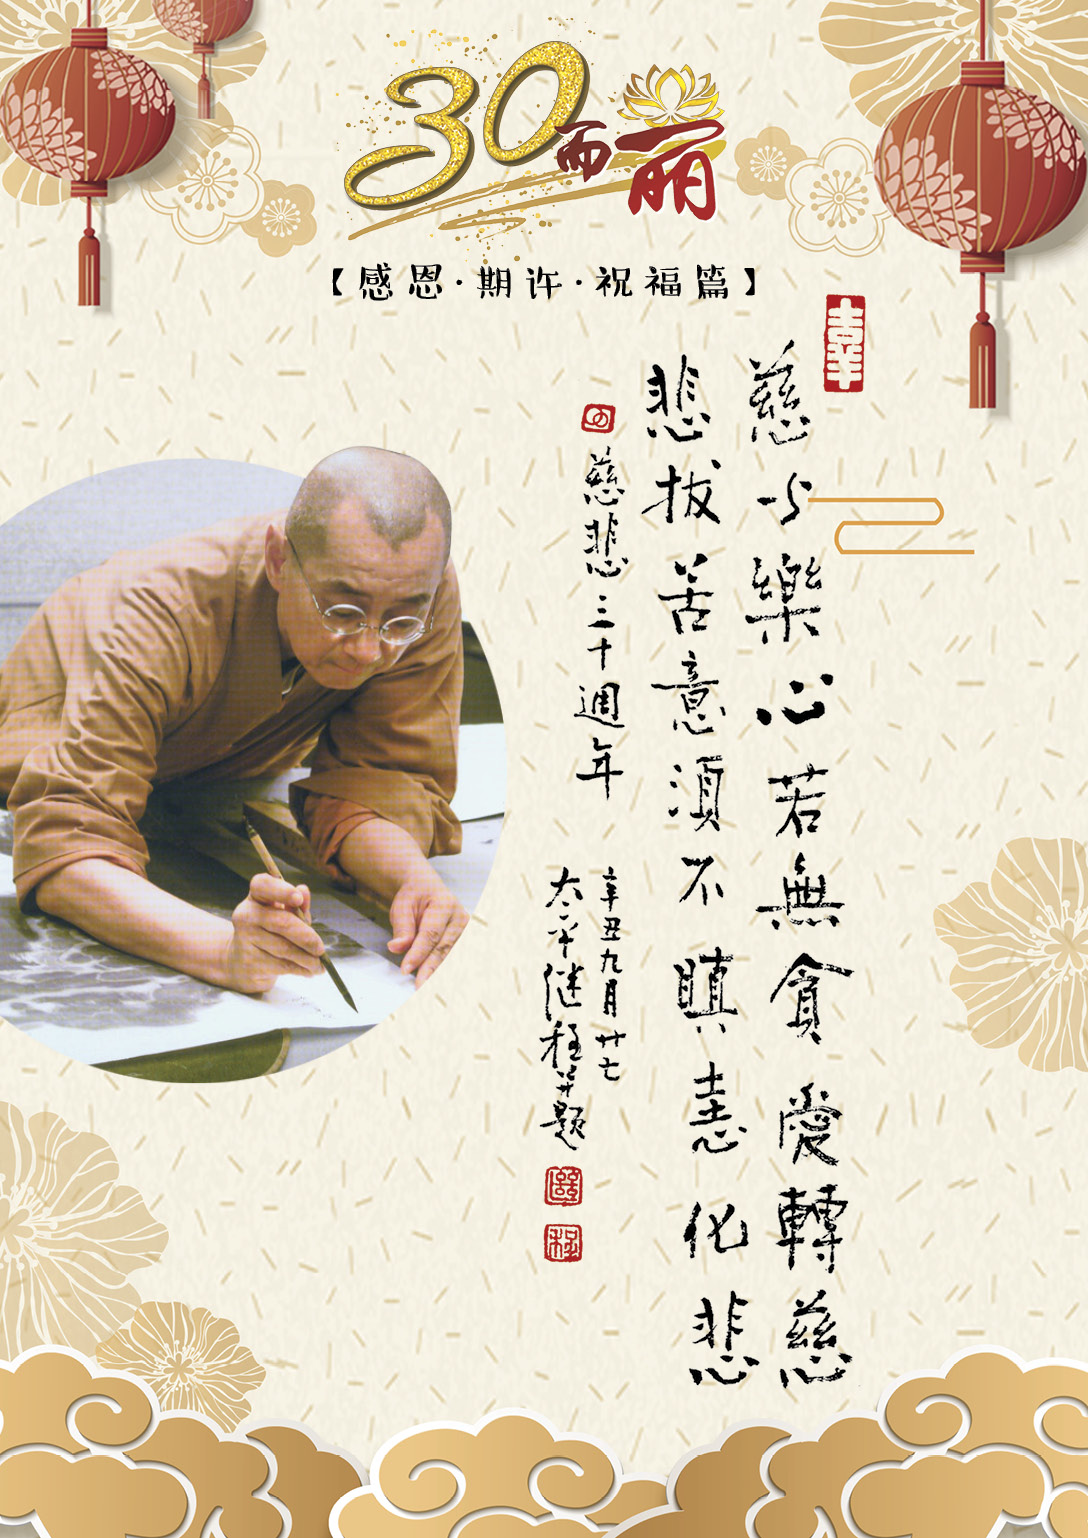 30而丽
【感恩·期许·祝福篇】
慈与樂心若無貪愛轉慈
悲拔苦意須不瞋恚化悲
慈悲三十週年
辛丑九月廿七
太平继程并题